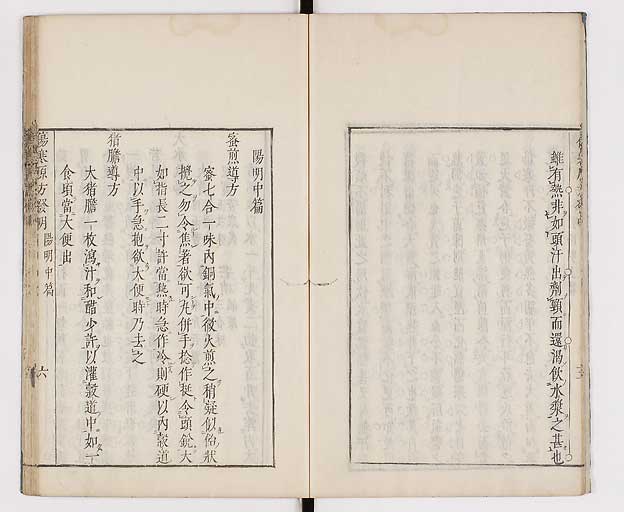 雖有熱非如頭汗出劑頸而還渴飲水漿之甚也
陽明中篇
蜜煎導方
蜜七合一味內銅器中微火煎之稍凝似飴狀
攪之勿令焦著欲可丸併手捻作挺令頭銳大
如指長二寸許當熱時急作冷則硬以內穀道
中以手急抱欲大便時乃去之
猪膽導方
大猪膽一枚瀉汁和醋少許以灌穀道中如一
食頃當大便出
傷寒 方 明 陽明中篇 六